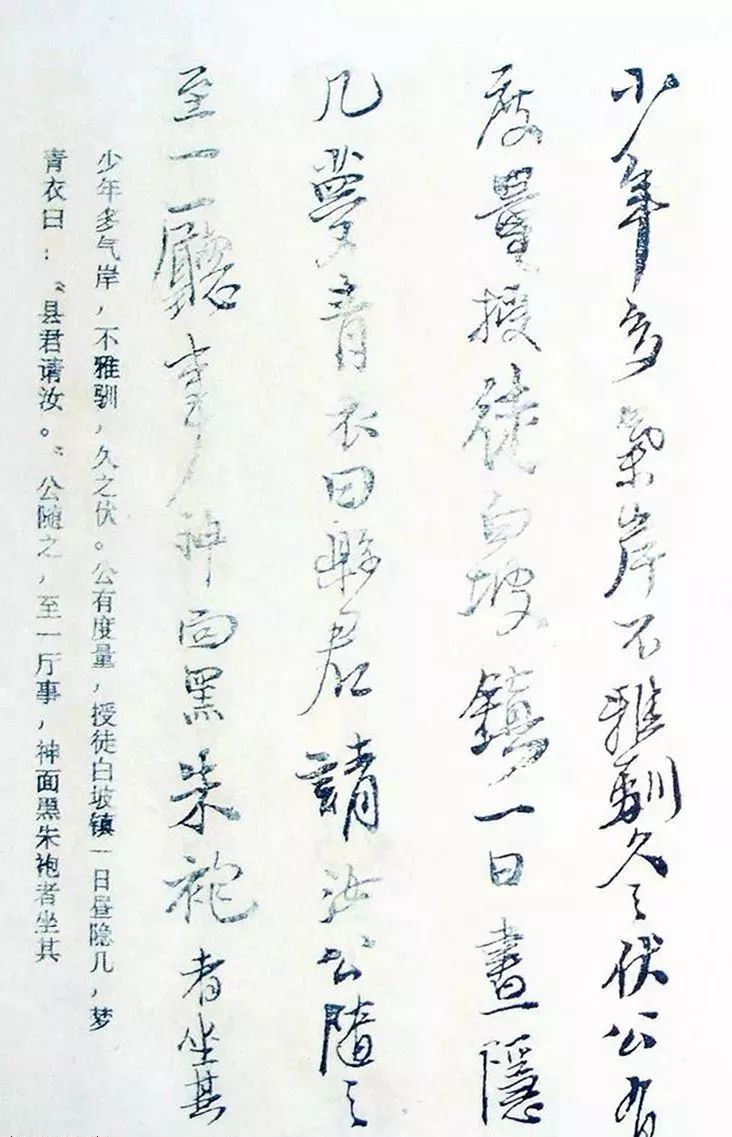 少年多氣岸不雅馴久之伏公有
度量授徒白坡鎮一日晝隱
几夢青衣曰縣君請汝公隨之
至一廳事神面黑朱袍者坐其
少年多气岸，不雅驯，久之伏。公有度量，授徒白坡镇一日昼隐几，梦
青衣曰：“县君请汝。”公随之，至一厅事，神面黑朱袍者坐其